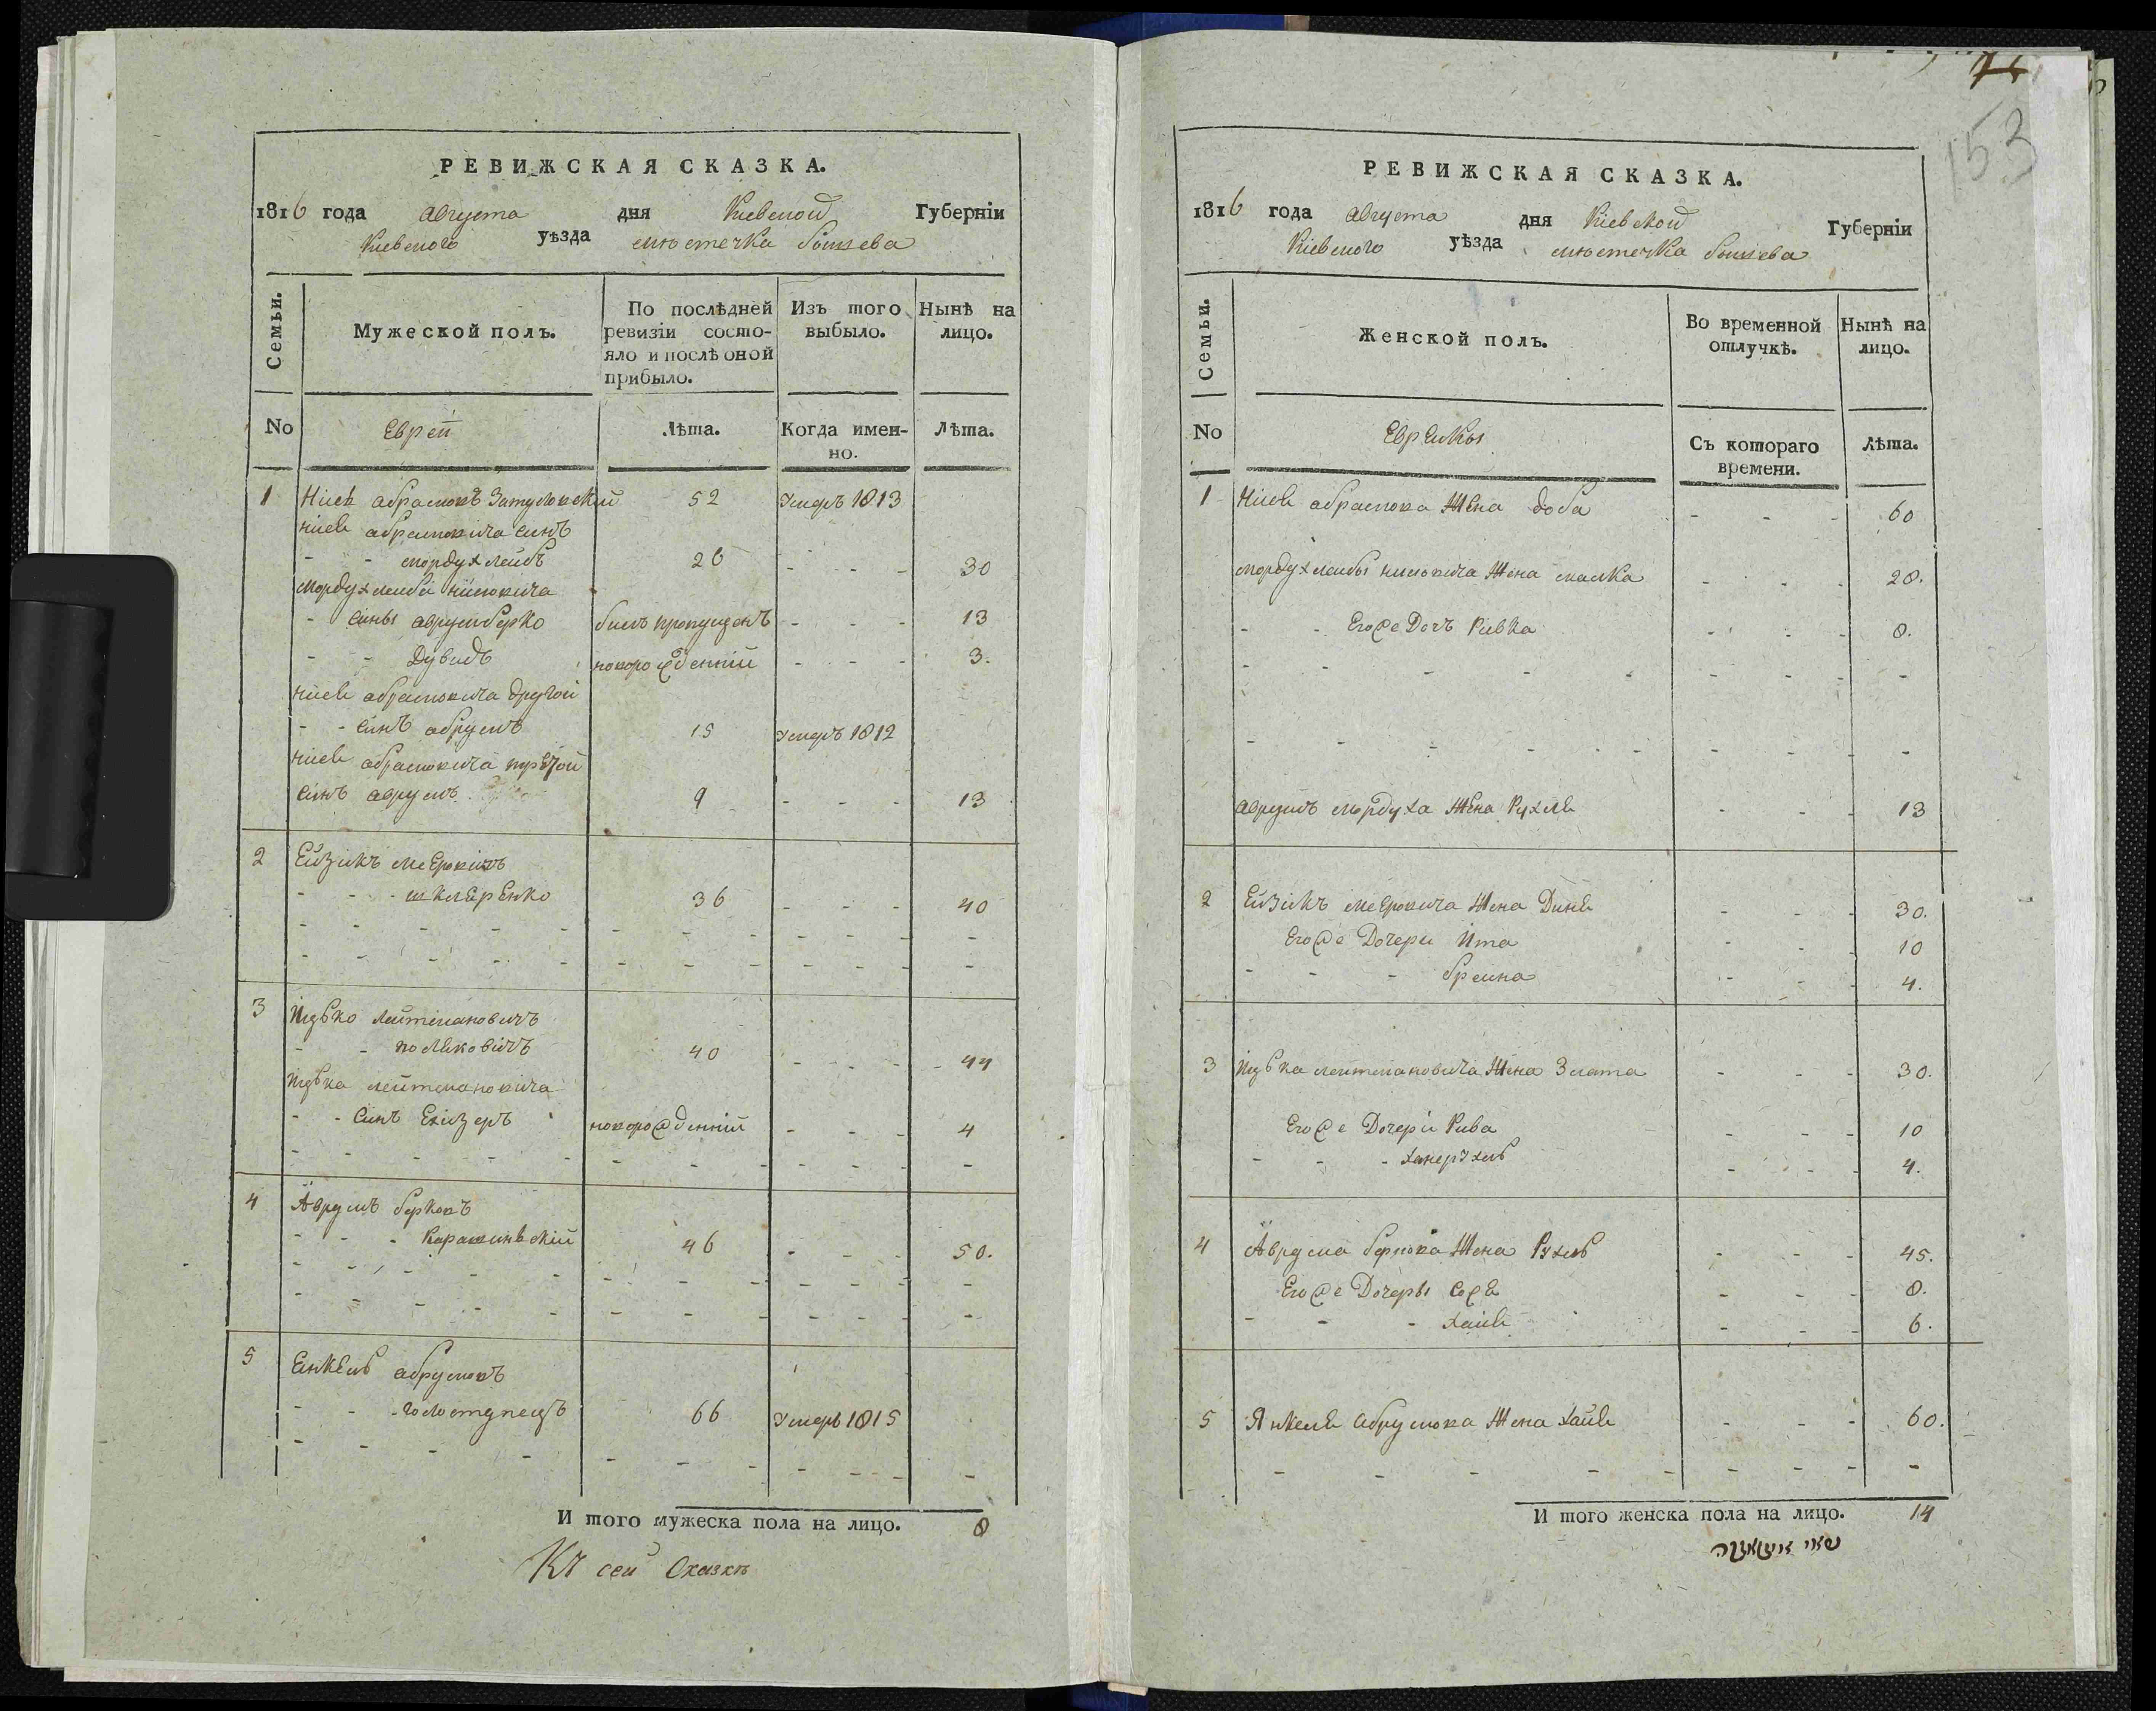 РЕВИЖСКАЯ СКАЗКА.
1816 года августа дня Киевской Губернїи
Киевского уѣзда мюстечка Бышева
Семьи. Мужеской полъ. По послѣдней ревизїи состояло и послѣ оной прибыло. Изъ того выбыло. Нынѣ на лицо.
No Евреи Лѣта. Когда именно. Лѣта.
1 абрамовъ 52 Умеръ 1813
абрамовича синъ
- - мордухлейбъ 26 - - - 30
мордухлейби
- сины аврумберко билъ пропущенъ - - - 13
- - Дувидъ новорожденнїй - - - 3.
абрамовича другой
- - синъ абрумъ 15 умеръ 1812
абрамовича третой
синъ аврумъ 9 - - - 13
2 Ейзикъ мееровичъ
- - - шклеренко 36 - - - 40
3 Ицько лейтмановичъ
- - поляковичъ 40 - - - 44
Ицька лейтмановича
- - синъ новорожденнїй - - - 4
4 Аврумъ берковъ
- - - Карашинскїй 46 - - - 50.
5 Енкель абрумовъ
- - - голоступецъ 66 Умеръ 1815
И того мужеска пола на лицо. 8
Къ сей Сказкѣ
153
РЕВИЖСКАЯ СКАЗКА.
1816 года августа дня Кїевской Губернїи
Кїевского уѣзда мюстечка Бышева
Семьи. Женской полъ. Во временной отлучкѣ. Нынѣ на лицо.
No Еврейкы Съ котораго времени. Лѣта.
1 абрамова жена доба - - - 60
мордухлейбы жена малка - - - 28.
- - Егоже Дочъ Ривка - - - 8.
аврумъ мордуха жена Рухля - - - 13
2 Ейзикъ мееровича жена Диня - - - 30.
Егоже Дочери Ита - - - 10
- - - брейна - - - 4.
3 Ицька лейтмановича жена Злата - - - 30.
Егоже Дочери Рива - - - 10
- - - - - - 4.
4 Аврума беркова жена Рухль - - - 45.
Егоже Дочеры - - - 8.
- - - хайя - - - 6.
5 Янкеля абрумова жена хайя - - - 60.
И того женска пола на лицо. 14